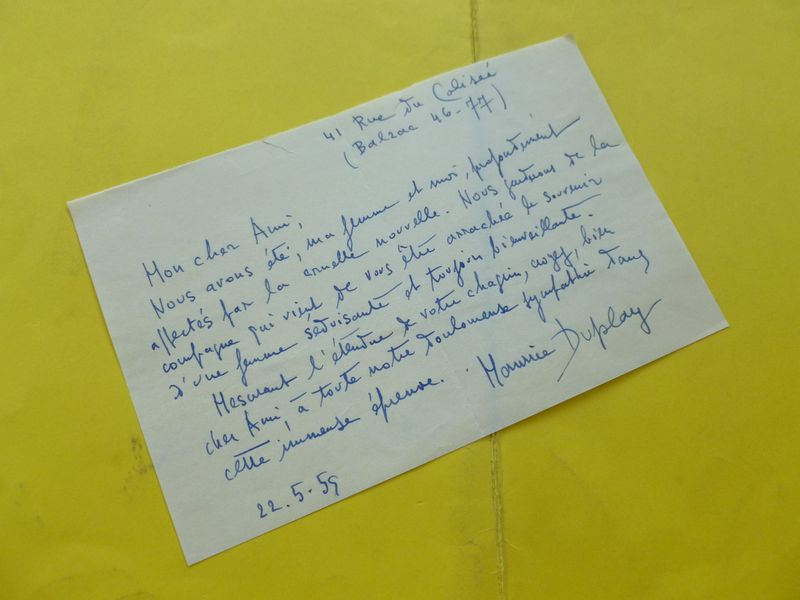 41 Rue du Colisée
(Balzac 46-77)
Mon cher Ami,
Nous avons été, ma femme et moi, profondément
affectés par la cruelle nouvelle. Nous gardons de la
compagne qui vient de vous être arrachée le souvenir
d'une femme séduisante et toujours bienveillante.
Mesurant l'étendue de votre chagrin, croyez, bien
cher Ami, à toute notre douloureuse sympathie dans
cette immense épreuve.
Maurice Duplay
22.5.59